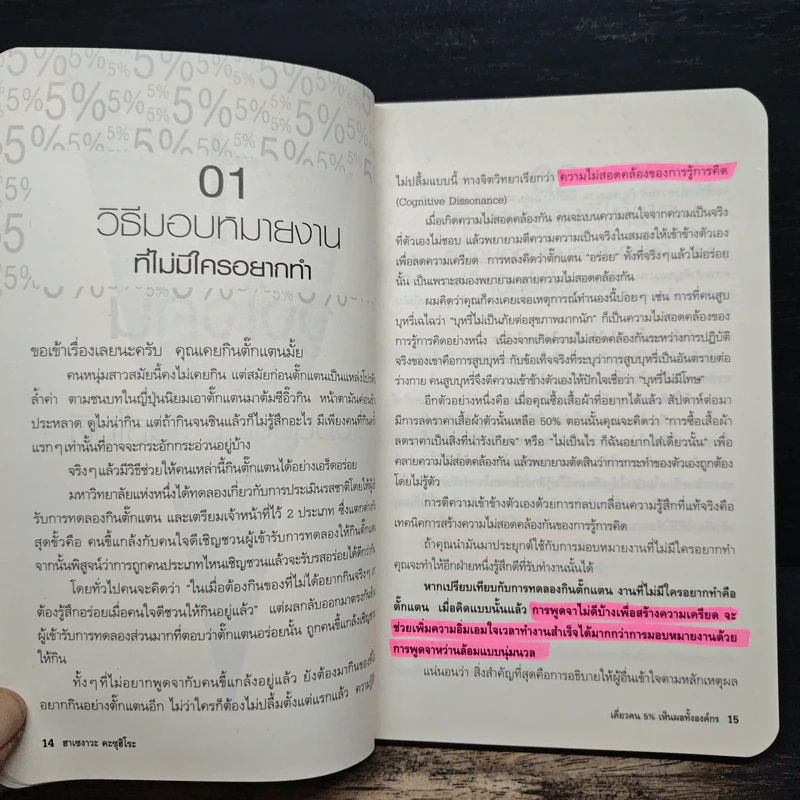 01
วิธีมอบหมายงาน
ที่ไม่มีใครอยากทำ
ขอเข้าเรื่องเลยนะครับ คุณเคยกินตั๊กแตนมั้ย
คนหนุ่มสาวสมัยนี้คงไม่เคยกิน แต่สมัยก่อนตั๊กแตนเป็นแหล่งโปรตีน
ล้ำค่า ตามชนบทในญี่ปุ่นนิยมเอาตั๊กแตนมาต้มซีอิ๊วกิน หน้าตามันค่อนข้าง
ประหลาด ดูไม่น่ากิน แต่ถ้ากินจนชินแล้วก็ไม่รู้สึกอะไร มีเพียงคนที่กินครั้ง
แรกๆ เท่านั้นที่อาจจะกระอักกระอ่วนอยู่บ้าง
จริงๆ แล้วมีวิธีช่วยให้คนเหล่านี้กินตั๊กแตนได้อย่างเอร็ดอร่อย
มหาวิทยาลัยแห่งหนึ่งได้ทดลองเกี่ยวกับการประเมินรสชาติโดยให้ผู้เข้า
รับการทดลองกินตั๊กแตน และเตรียมเจ้าหน้าที่ไว้ 2 ประเภท ซึ่งแตกต่างกัน
สุดขั้วคือ คนขี้แกล้งกับคนใจดีเชิญชวนผู้เข้ารับการทดลองให้กินตั๊กแตน
จากนั้นพิสูจน์ว่าการถูกคนประเภทไหนเชิญชวนแล้วจะรับรสอร่อยได้ดีกว่ากัน
โดยทั่วไปคนจะคิดว่า "ในเมื่อต้องกินของที่ไม่ได้อยากกินจริงๆ
ต้องรู้สึกอร่อยเมื่อคนใจดีชวนให้กินอยู่แล้ว" แต่ผลกลับออกมาตรงกันข้าม
ผู้เข้ารับการทดลองส่วนมากที่ตอบว่าตั๊กแตนอร่อยนั้น ถูกคนขี้แกล้งเชิญชวน
ให้กิน
ทั้งๆ ที่ไม่อยากพูดจากับคนขี้แกล้งอยู่แล้ว ยังต้องมากินของที่ไม่
อยากกินอย่างตั๊กแตนอีก ไม่ว่าใครก็ต้องไม่ปลื้มตั้งแต่แรกแล้ว ความรู้สึก
14 ฮาเซงาวะ คะซุฮิโระ
ไม่ปลื้มแบบนี้ ทางจิตวิทยาเรียกว่า ความไม่สอดคล้องของการรู้การคิด
(Cognitive Dissonance)
เมื่อเกิดความไม่สอดคล้องกัน คนจะเบนความสนใจจากความเป็นจริง
ที่ตัวเองไม่ชอบ แล้วพยายามตีความความเป็นจริงในสมองให้เข้าข้างตัวเอง
เพื่อลดความเครียด การหลงคิดว่าตั๊กแตน "อร่อย" ทั้งที่จริงๆ แล้วไม่อร่อย
นั้น เป็นเพราะสมองพยายามคลายความไม่สอดคล้องกัน
ผมคิดว่าคุณก็คงเคยเจอเหตุการณ์ทำนองนี้บ่อยๆ เช่น การที่คนสูบ
บุหรี่เฉไฉว่า "บุหรี่ไม่เป็นภัยต่อสุขภาพมากนัก" ก็เป็นความไม่สอดคล้องของ
การรู้การคิดอย่างหนึ่ง เนื่องจากเกิดความไม่สอดคล้องกันระหว่างการปฏิบัติ
จริงของเขาคือการสูบบุหรี่ กับข้อเท็จจริงที่ระบุว่าการสูบบุหรี่เป็นอันตรายต่อ
ร่างกาย คนสูบบุหรี่จึงตีความเข้าข้างตัวเองให้ปักใจเชื่อว่า "บุหรี่ไม่มีโทษ"
อีกตัวอย่างหนึ่งคือ เมื่อคุณซื้อเสื้อผ้าที่อยากได้แล้ว สัปดาห์ต่อมา
มีการลดราคาเสื้อผ้าตัวนั้นเหลือ 50% ตอนนั้นคุณจะคิดว่า "การซื้อเสื้อผ้า
ลดราคาเป็นสิ่งที่น่ารังเกียจ" หรือ "ไม่เป็นไร ก็ฉันอยากใส่เดี๋ยวนั้น" เพื่อ
คลายความไม่สอดคล้องกัน แล้วพยายามตัดสินว่าการกระทำของตัวเองถูกต้อง
โดยไม่รู้ตัว
การตีความเข้าข้างตัวเองด้วยการกลบเกลื่อนความรู้สึกที่แท้จริงคือ
เทคนิคการสร้างความไม่สอดคล้องกันของการรู้การคิด
ถ้าคุณนำมันมาประยุกต์ใช้กับการมอบหมายงานที่ไม่มีใครอยากทำ
คุณจะทำให้อีกฝ่ายหนึ่งรู้สึกดีที่รับทำงานนั้นได้
หากเปรียบเทียบกับการทดลองกินตั๊กแตน งานที่ไม่มีใครอยากทำคือ
ตั๊กแตน เมื่อคิดแบบนั้นแล้ว การพูดจาไม่ดีบ้างเพื่อสร้างความเครียด จะ
ช่วยเพิ่มความอิ่มเอมใจเวลาทำงานสำเร็จได้มากกว่าการมอบหมายงานด้วย
การพูดจาหว่านล้อมแบบนุ่มนวล
แน่นอนว่า สิ่งสำคัญที่สุดคือการอธิบายให้ผู้อื่นเข้าใจตามหลักเหตุผล
เคี่ยวคน 5% เห็นผลทั้งองค์กร 15